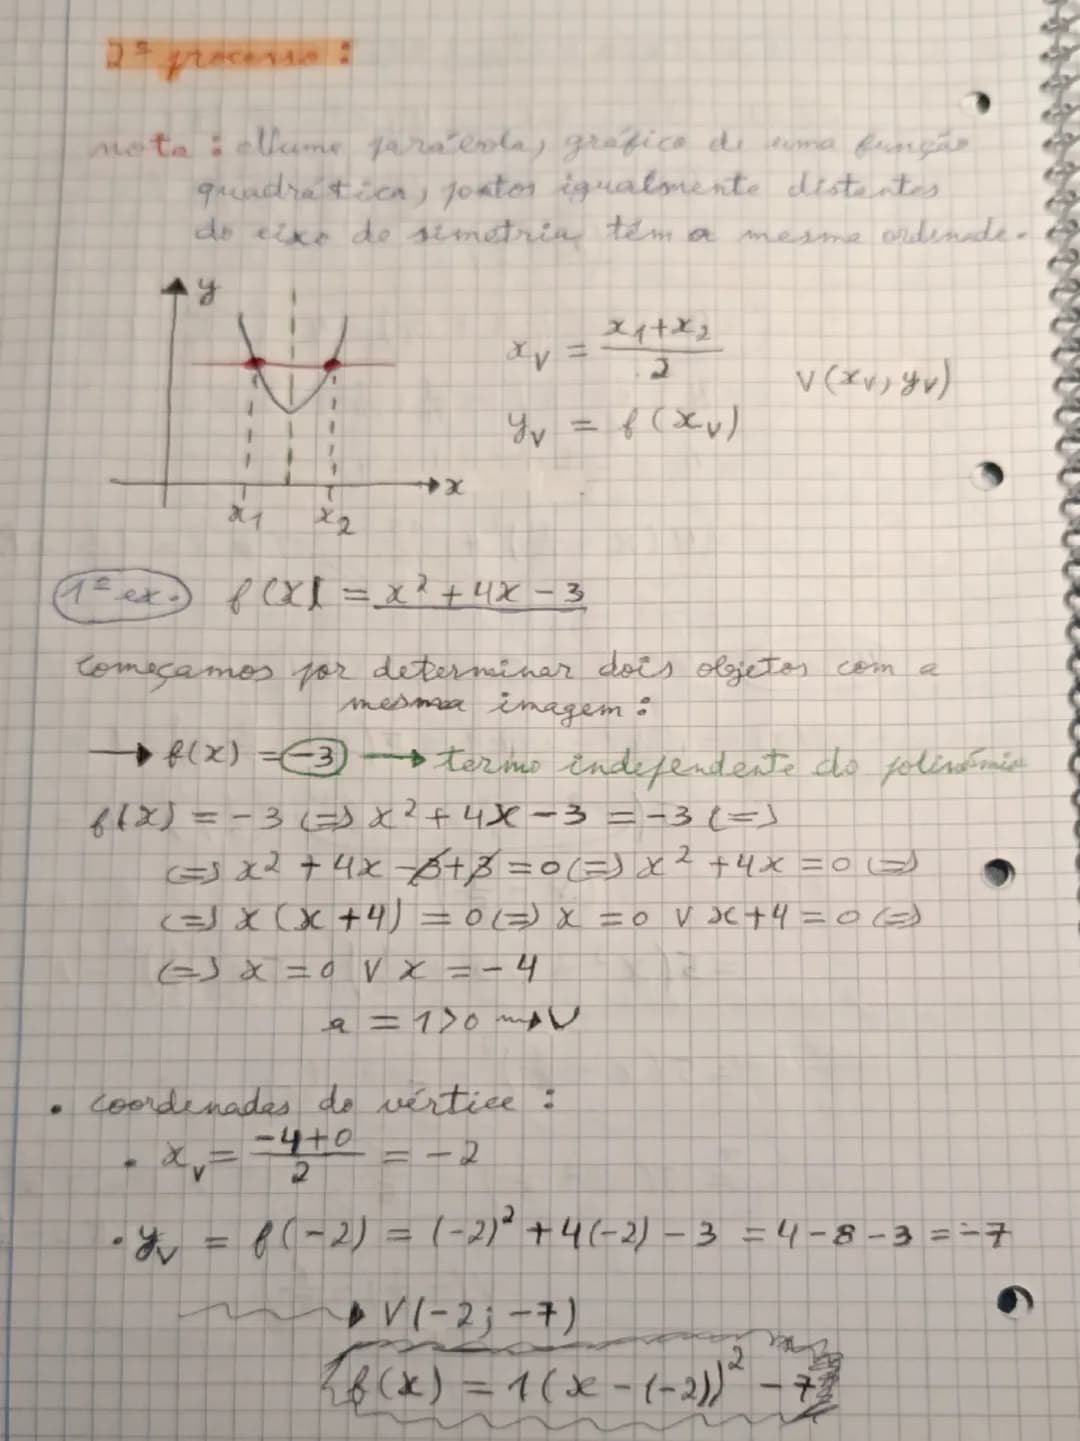 2º processo:
nota: Numa parábola, gráfico de uma função
quadrática, pontos igualmente distantes
do eixo de simetria têm a mesma ordenada.
y
x_v = (x_1+x_2)/2
V(x_v, y_v)
y_v = f(x_v)
x
x_1 x_2
1º ex. f(x) = x² + 4x - 3
Começamos por determinar dois objetos com a
mesma imagem:
→ f(x) = -3 → termo independente do polinómio
f(x) = -3 (=) x² + 4x - 3 = -3 (=)
(=) x² + 4x - 3 + 3 = 0 (=) x² + 4x = 0 (=)
(=) x (x + 4) = 0 (=) x = 0 ∨ x + 4 = 0 (=)
(=) x = 0 ∨ x = -4
a = 1 > 0 → ∪
• coordenadas do vértice:
• x_v = (-4+0)/2 = -2
• y_v = f(-2) = (-2)² + 4(-2) - 3 = 4 - 8 - 3 = -7
→ V(-2; -7)
f(x) = 1(x - (-2))² - 7